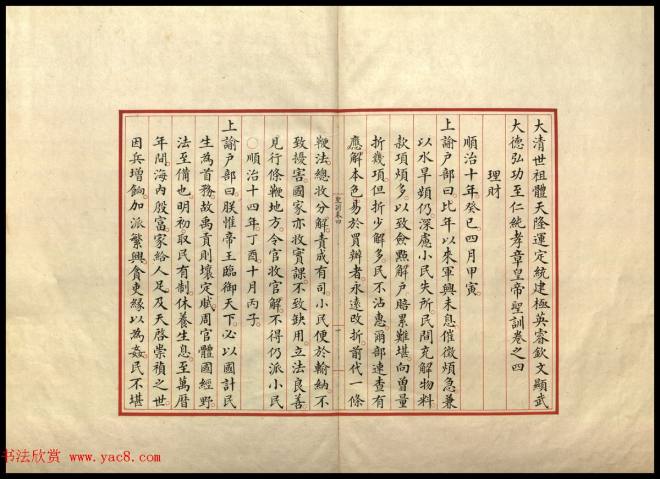 大清世祖體天隆運定統建極英睿欽文顯武
大德弘功至仁純孝章皇帝聖訓卷之四
理財
順治十年癸巳四月甲寅
上諭户部曰比年以來軍興未息催徵煩急兼
以水旱頻仍深慮小民失所民間充解物料
款項煩多以致僉點解户賠累難堪向曽量
折幾項但折少解多民不沾惠爾部速查有
應解本色易於買辦者永遠改折前代一條
聖訓卷四
一
鞭法總收分解責成有司小民便於輸納不
致擾害國家亦收實課不致缺用立法良善
見行條鞭地方令官收官解不得仍派小民
○順治十四年丁酉十月丙子
上諭户部曰朕惟帝王臨御天下必以國計民
生為首務故禹貢則壤定賦周官體國經野
法至備也明初取民有制休養生息至萬曆
年間海內殷富家給人足及天啓崇禎之世
因兵增餉加派繁興貪吏緣以為姦民不堪
书法欣赏 www.yac8.com